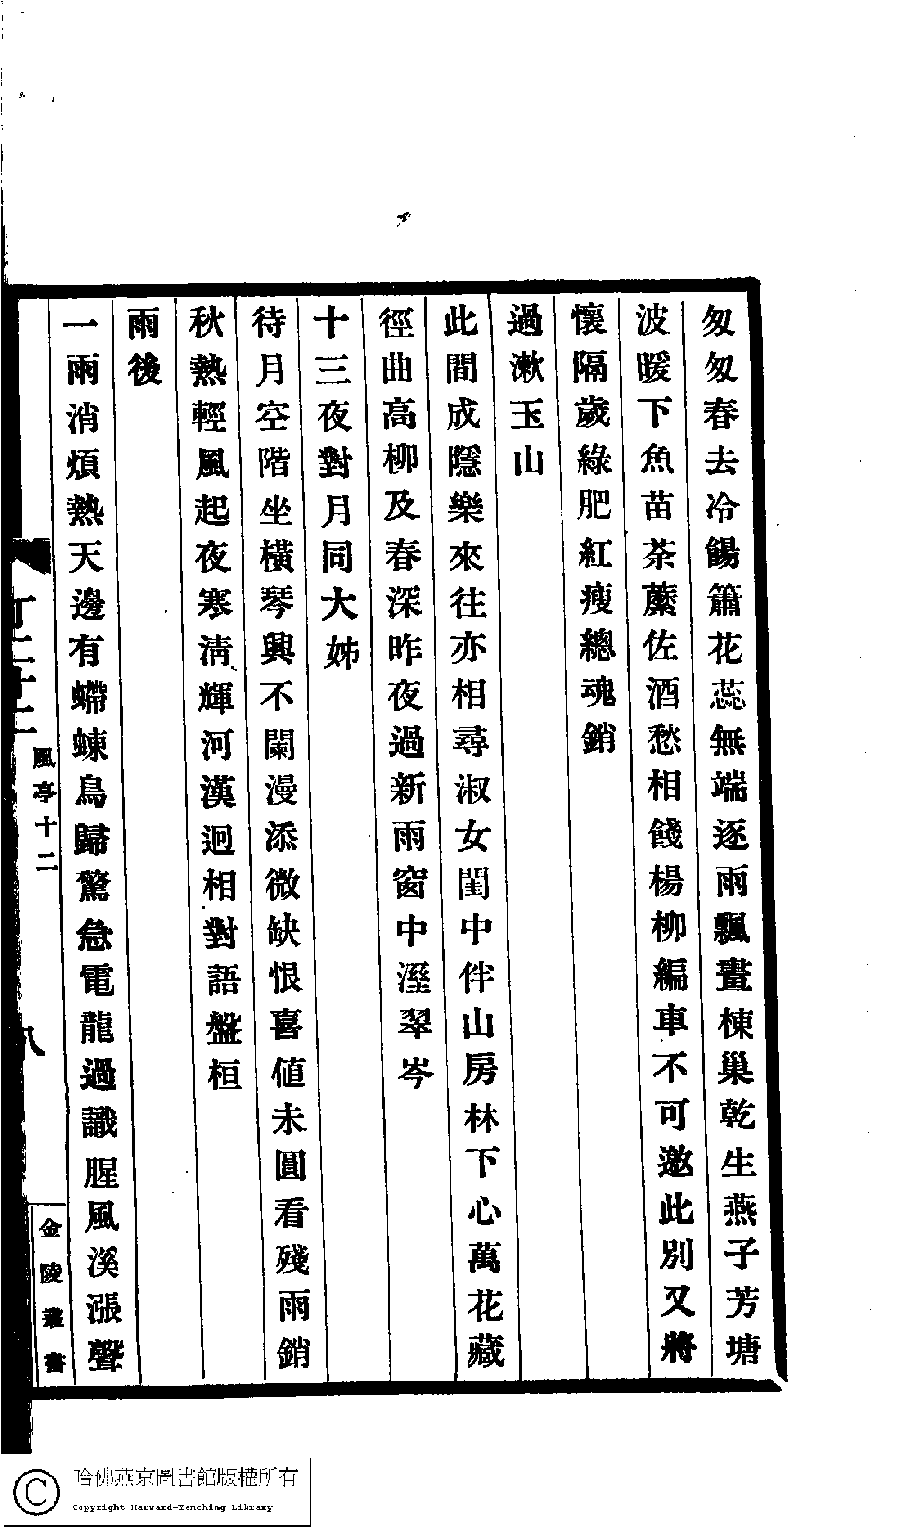 匆匆春去冷餳簫花蕊無端逐雨飄畫棟巢乾生燕子芳塘
波暖下魚苗荼蘼佐酒愁相餞楊柳編車不可邀此別又將
懷隔歲綠肥紅瘦總魂銷
過漱玉山
此間成隱樂來往亦相尋淑女閨中伴山房林下心萬花藏
徑曲高柳及春深昨夜過新雨窗中溼翠岑
十三夜對月同大姊
待月空階坐橫琴興不闌漫添微缺恨喜値未圓看殘雨銷
秋熱輕風起夜寒淸輝河漢迥相對語盤桓
雨後
一雨消煩熱天邊有螮蝀鳥歸驚急電龍過識腥風溪漲聲
風亭十二
八
金陵叢書
哈佛燕京圖書館版權所有
Copyright Harvard-Yenching Library